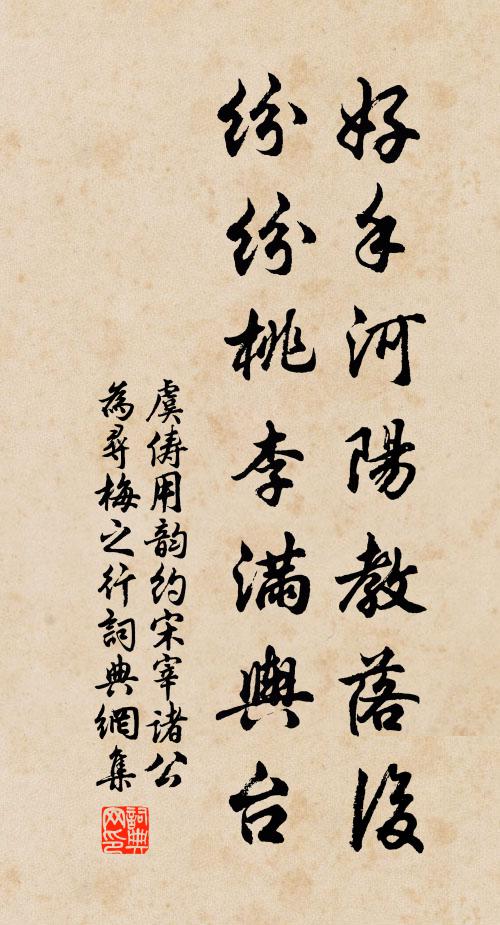 好手河陽教落後
紛紛桃李滿輿台
虞儔用韵約宋宰诸公
為尋梅之行詞典網集
詞典网印